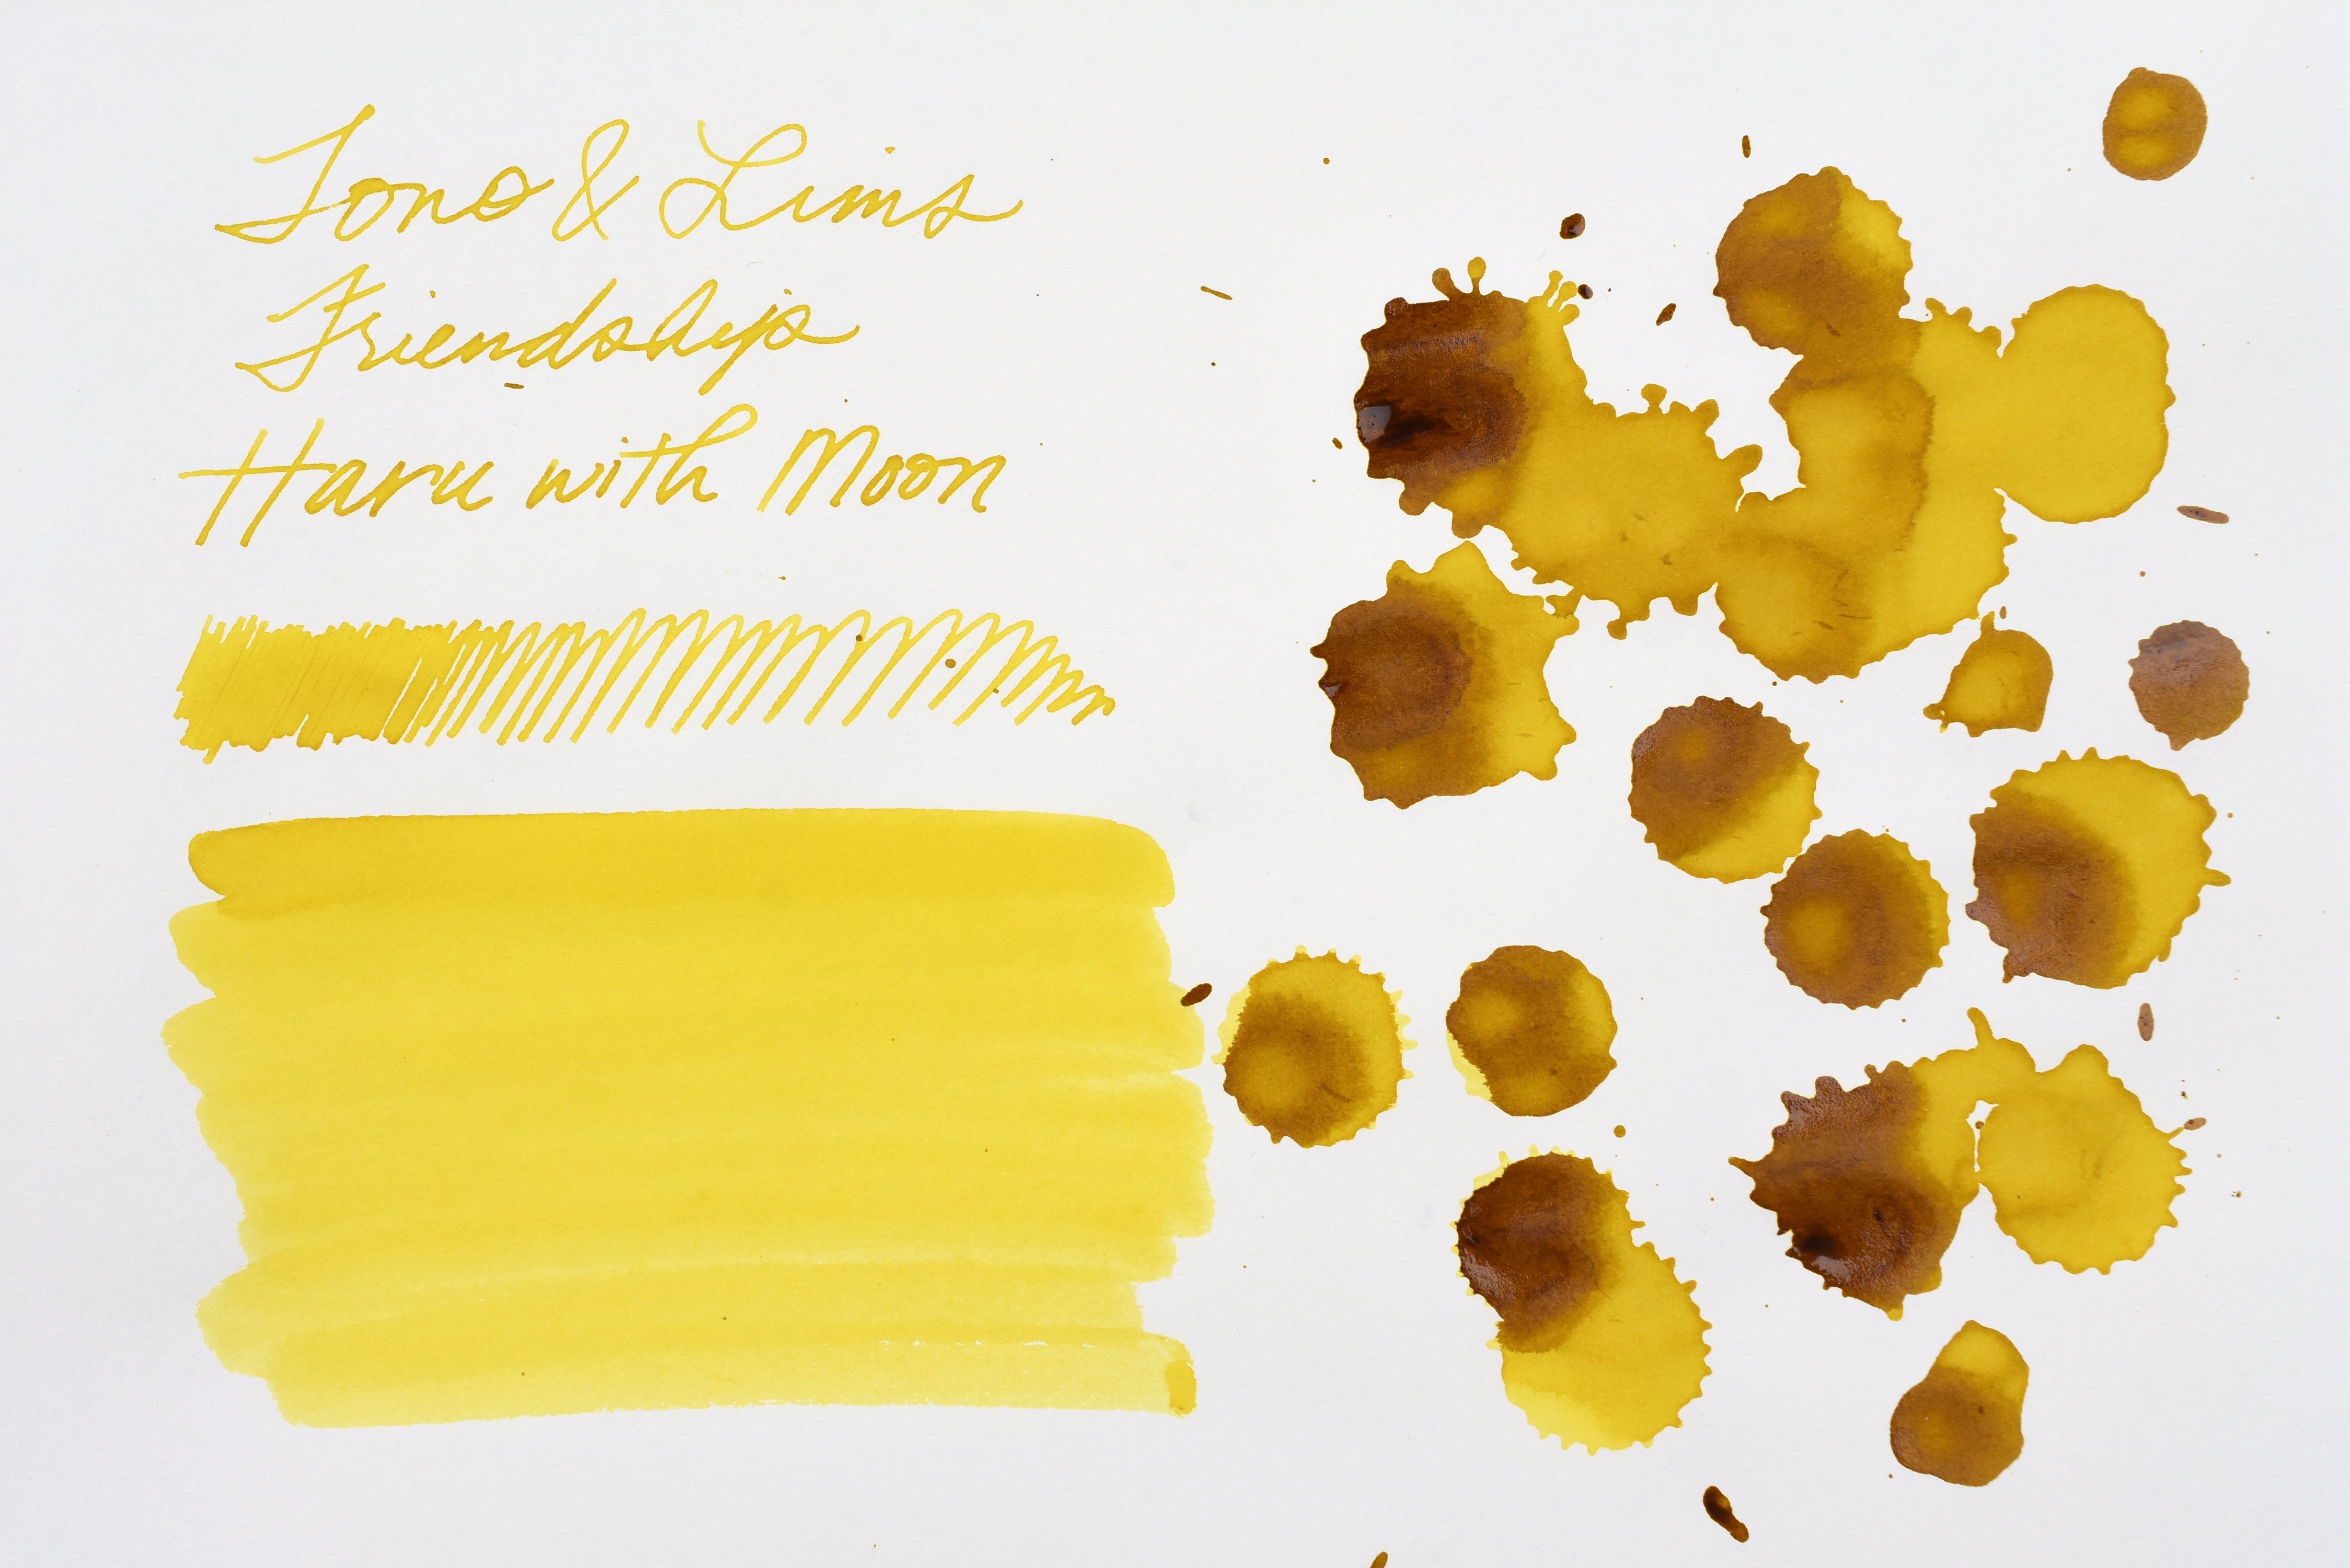 Tono & Lims
Friendship
Haru with Moon